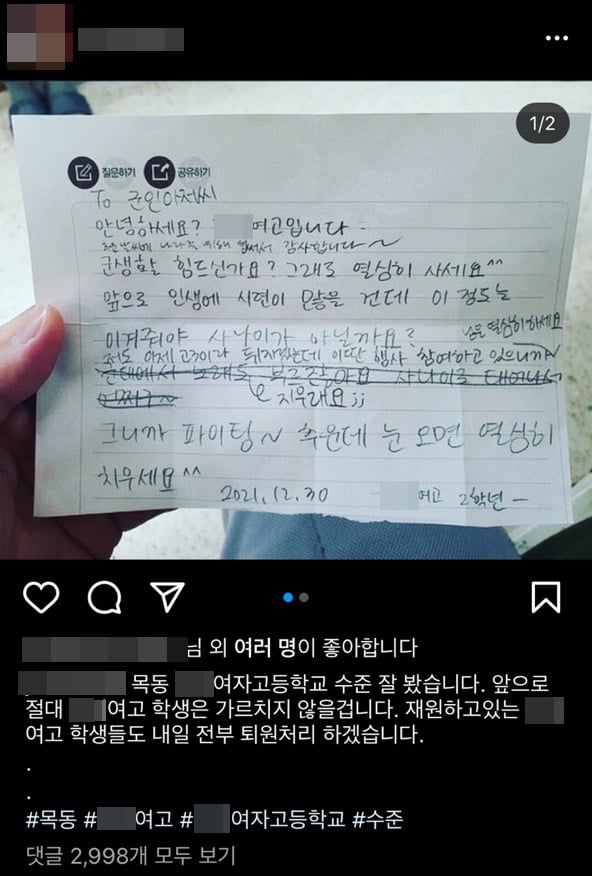 1/2
질문하기 공유하기
To 군인아저씨
안녕하세요? 여고입니다
추운 날씨에 나라를 위해 힘써서 감사합니다~
군생활 힘드신가요? 그래도 열심히 사세요^^
앞으로 인생에 시련이 많을 건데 이 정도는
이겨줘야 사나이가 아닐까요?
저도 이제 고3이라 뒤지겠는데 이딴 행사 참여하고 있으니까~
님은 열심히 하세요
군대에서 노래도 부르잖아요 사나이로 태어나서
어쩌구~
지우래요;;
그니까 파이팅~ 추운데 눈 오면 열심히
치우세요^^
2021.12.30 여고 2학년
님 외 여러 명이 좋아합니다
목동 여자고등학교 수준 잘 봤습니다. 앞으로
절대 여고 학생은 가르치지 않을겁니다. 재원하고있는
여고 학생들도 내일 전부 퇴원처리 하겠습니다.
.
.
#목동 # 여고 # 여자고등학교 #수준
댓글 2,998개 모두 보기